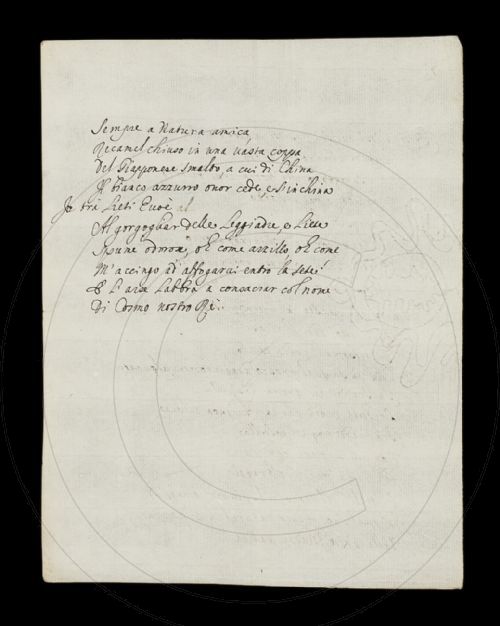 Sempre a Natura amica
Recamel chiuso in una vasta coppa
Del Giapponese smalto, a cui di China
Il bianco azzurro onor cede, e s'inchina
Io trà lieti Evoè al
Al gorgogliar delle leggiadre, e liete
Spume odorose, oh come arzillo oh come
M'accingo ad affogarci entro la sete!
E l'arse labbra a consacrar col nome
Di Cosmo nostro Rè.